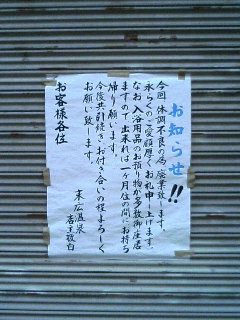 お知らせ!!
今回体調不良の為廃業致します。
永らくのご愛顧厚くお礼申し上げます。
なお入浴用品のお預り物が多数御座居
ますので出来れば一ヶ月位の間にお持ち
帰り願います。
今後共引続きお付き合いの程よろしく
お願い致します。
末広温泉
店主敬白
お客様各位